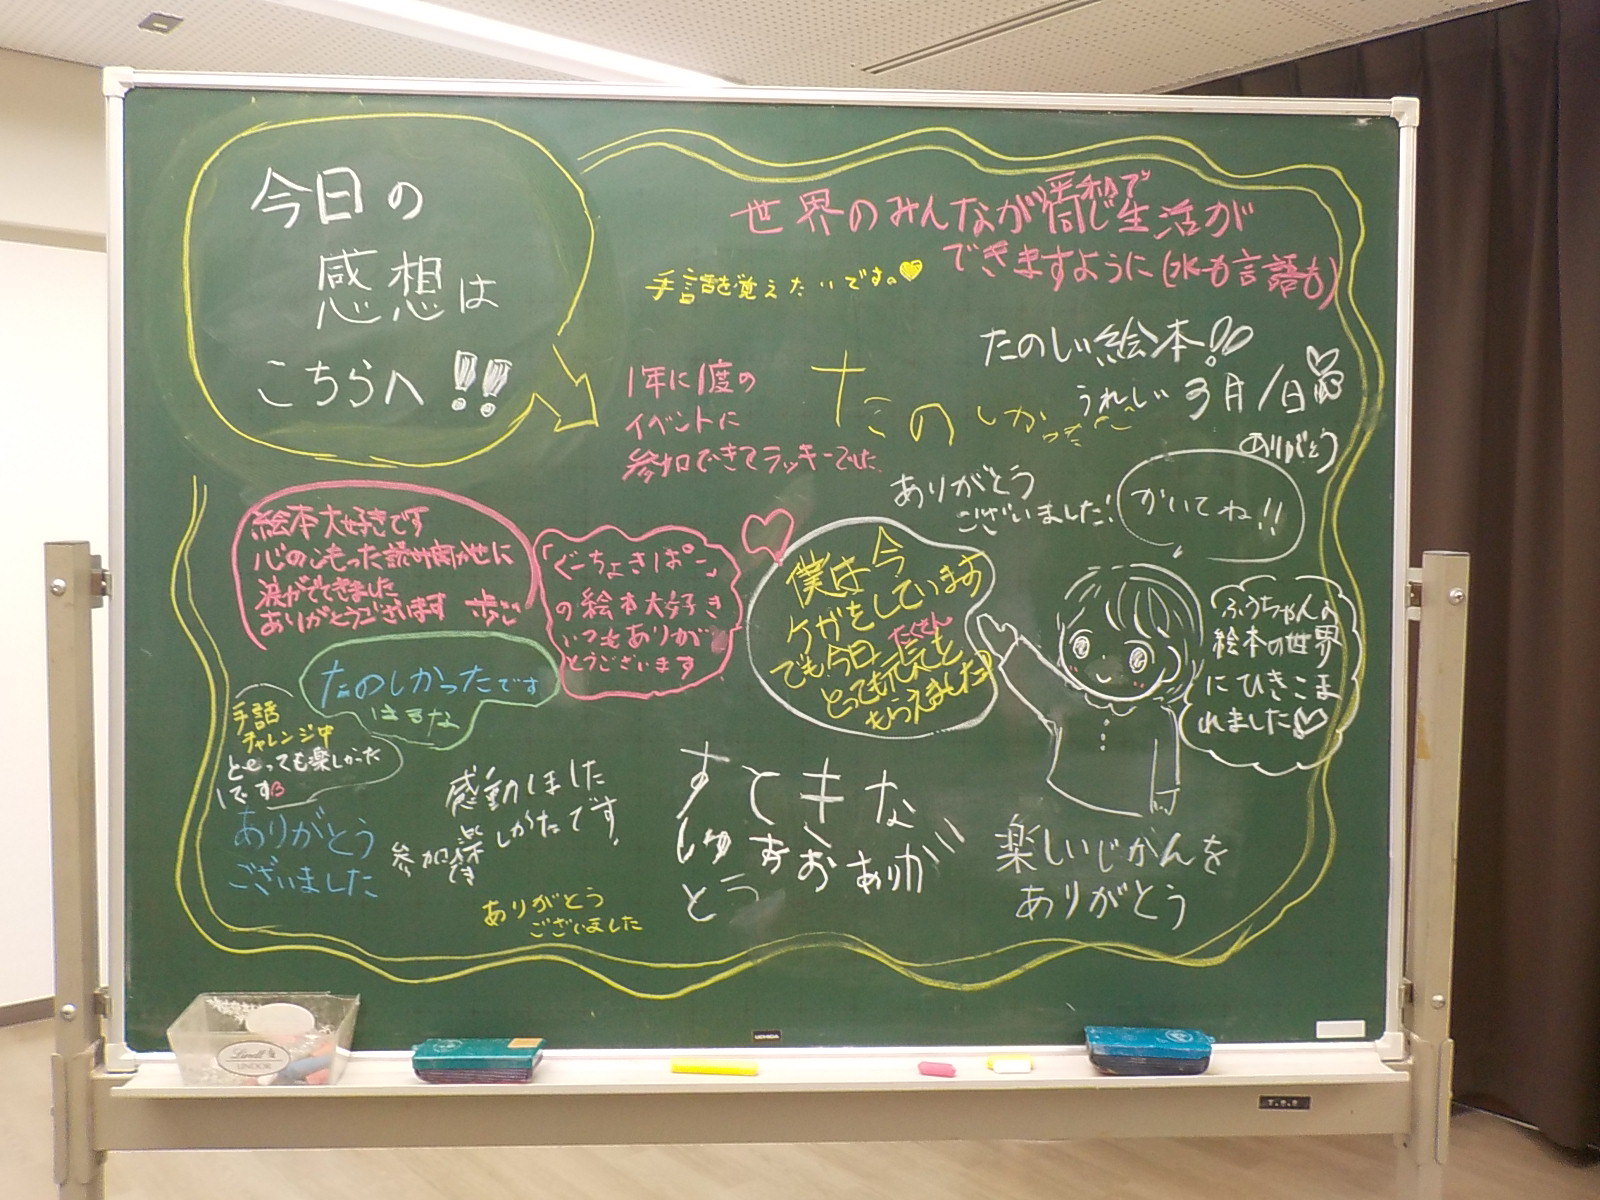 今日の
感想は
こちらへ!!
世界のみんなが平和で同じ生活が
できますように(水も言語も)
手話を覚えたいです。
たのしい絵本!!
うれしい 3月1日
ありがとう
1年に1度の
イベントに
参加できてラッキーでした
たのしかった
ありがとう
ございました!
かいてね!!
絵本大好きです
心のこもった読み聞かせに
涙がでてきました
ありがとうございます
「ぐーちょきぱー」
の絵本大好き
いつもありが
とうございます
僕は今
ケガをしています
でも今日たくさん
とっても元気を
もらえました!
ふうちゃんの
絵本の世界
にひきこま
れました
たのしかったです
はるな
手話
チャレンジ中
とっても楽しかった
です
ありがとう
ございました
感動しました
参加
楽しかったです
ありがとう
ございました
すてきな
ありが
とう
楽しいじかんを
ありがとう
Lindt
LINDOR
UCHIDA